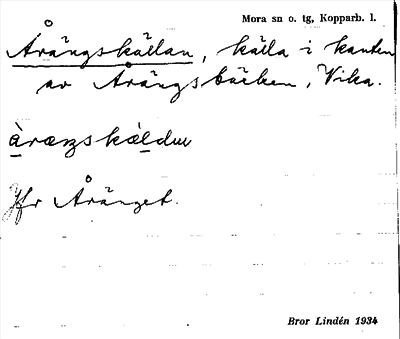 Mora sn o. tg, Kopparb. l.
Årängskällan, källa i kanten
av Årängsbäcken, Vika.
Jfr Åränget.
Bror Lindén 1934